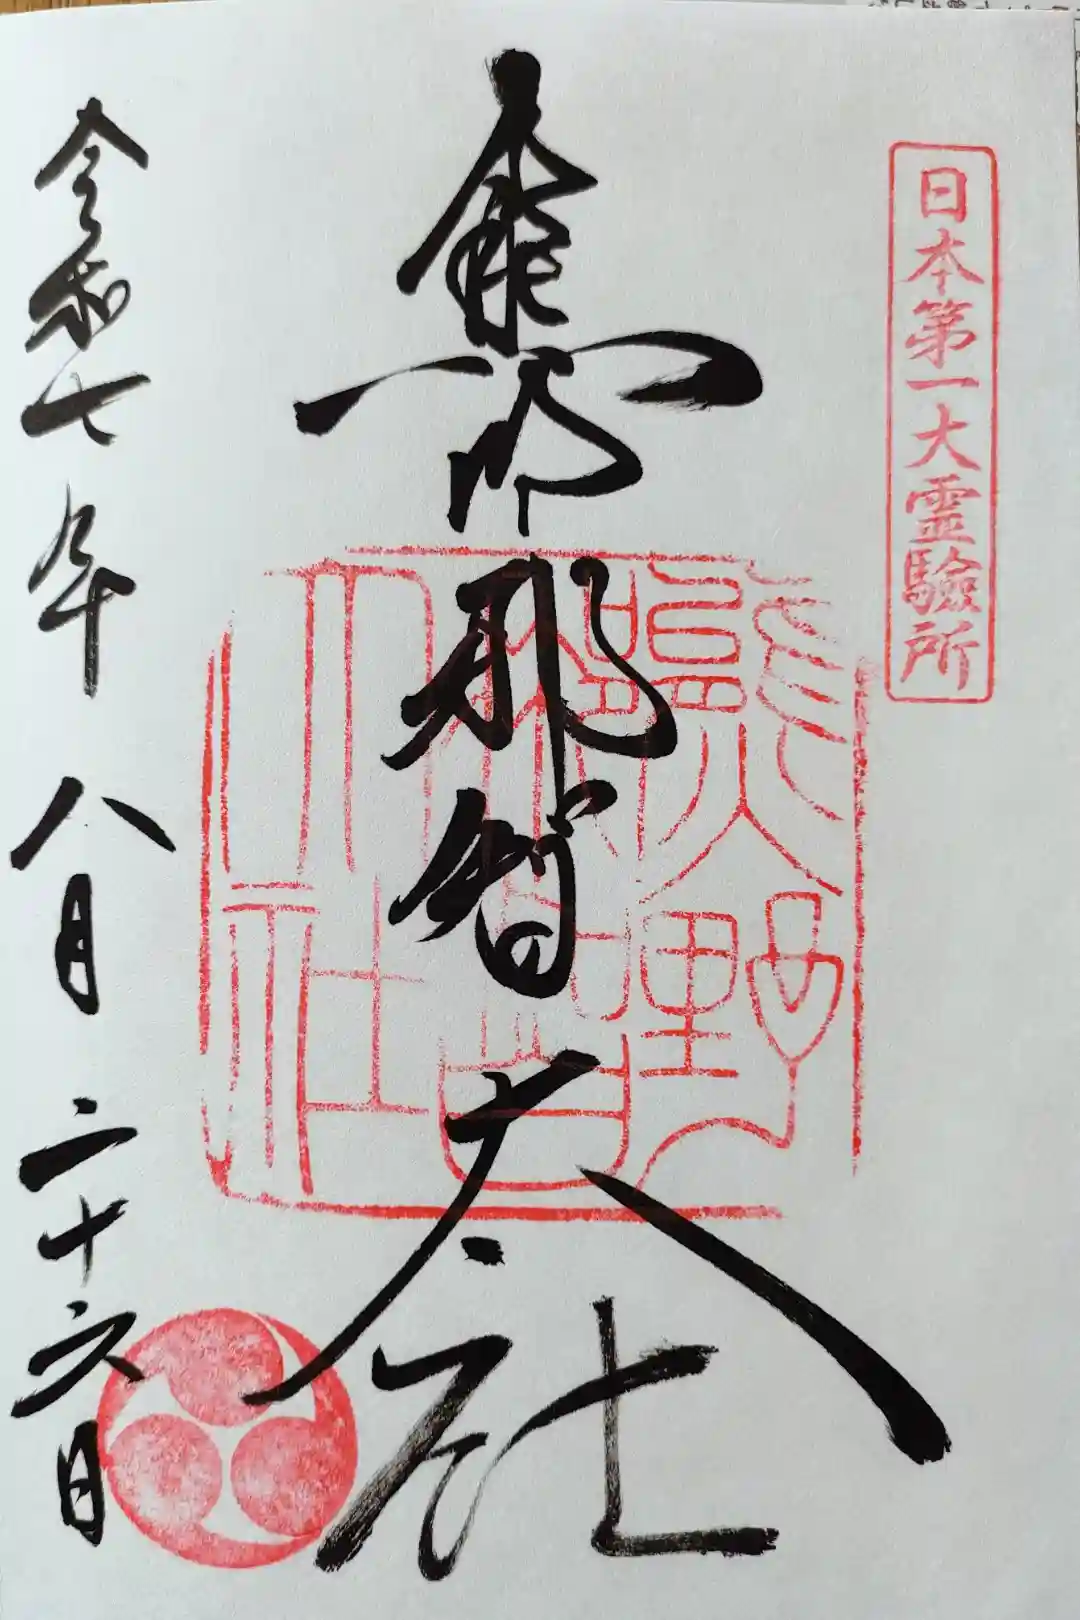 日本第一大霊驗所
熊野那智大社
令和七年八月二十六日
熊野
大社